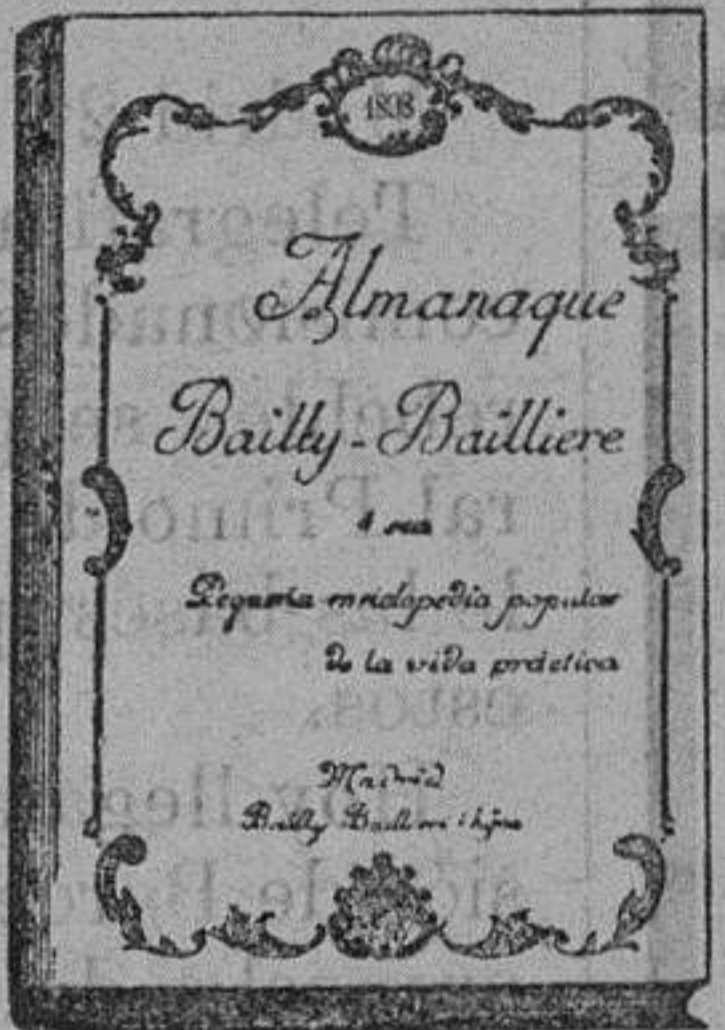 1898
Almanaque
Bailly-Bailliere
ó sea
Pequeña enciclopedia popular
de la vida práctica
Madrid
Bailly Bailliere é hijos